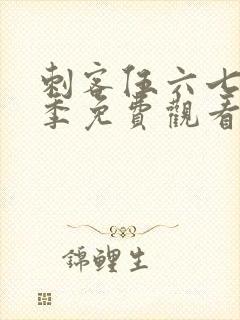 刺客伍六七
季免費觀看
錦鯉生